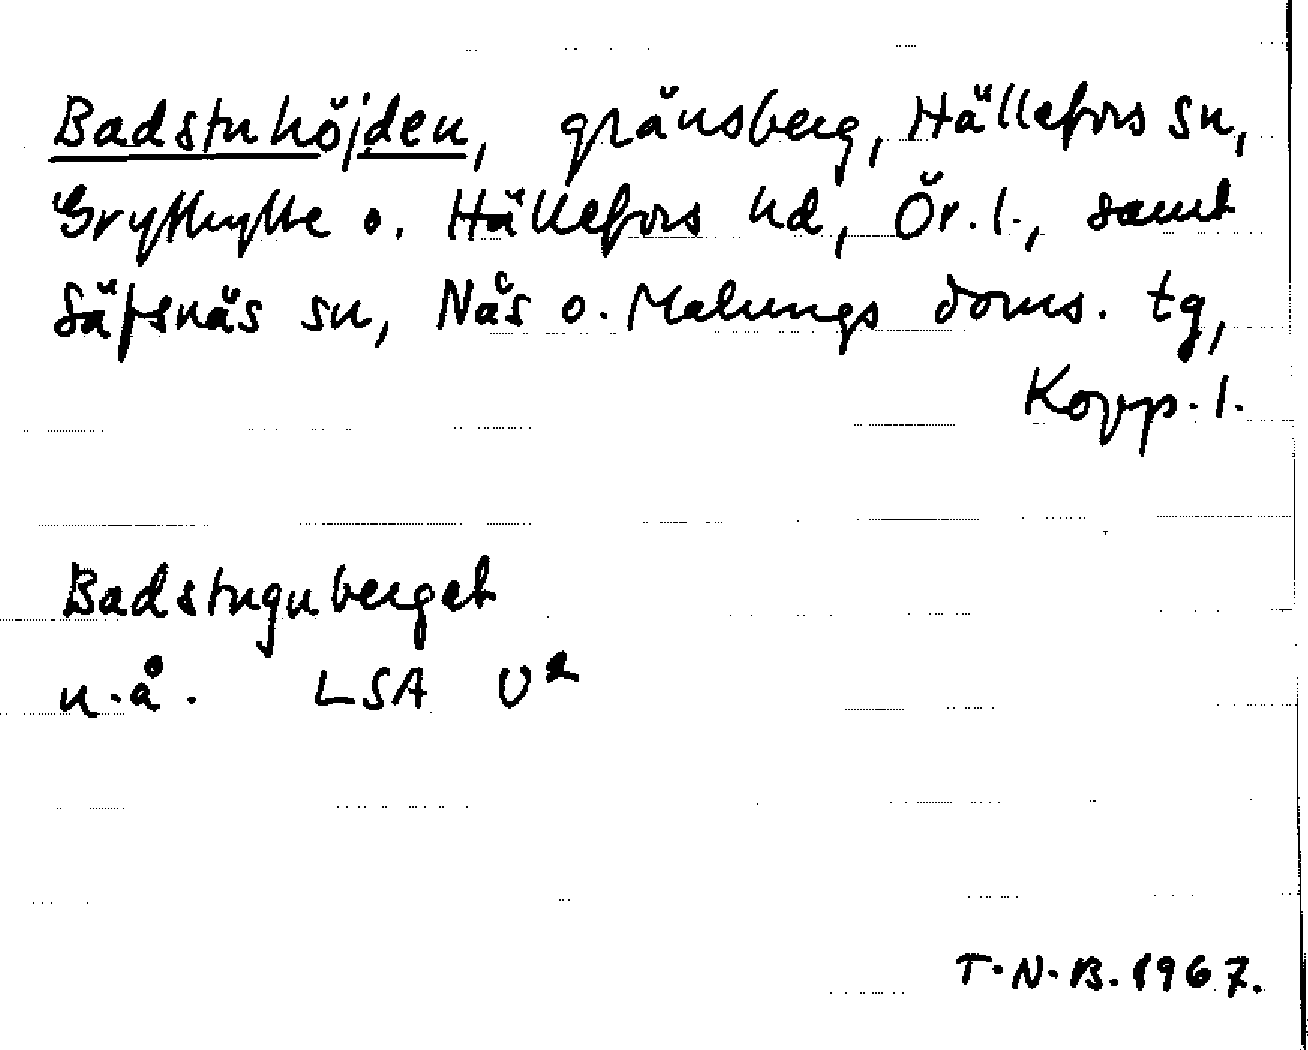 Badstuhöjden, gränsberg, Hällefors sn,
Grythytte o. Hällefors hd, Ör. l., samt
Säfsnäs sn, Nås o. Malungs doms. tg,
Kopp. l.
Badstuguberget
n.å. LSA U²
T.N.B. 1967.